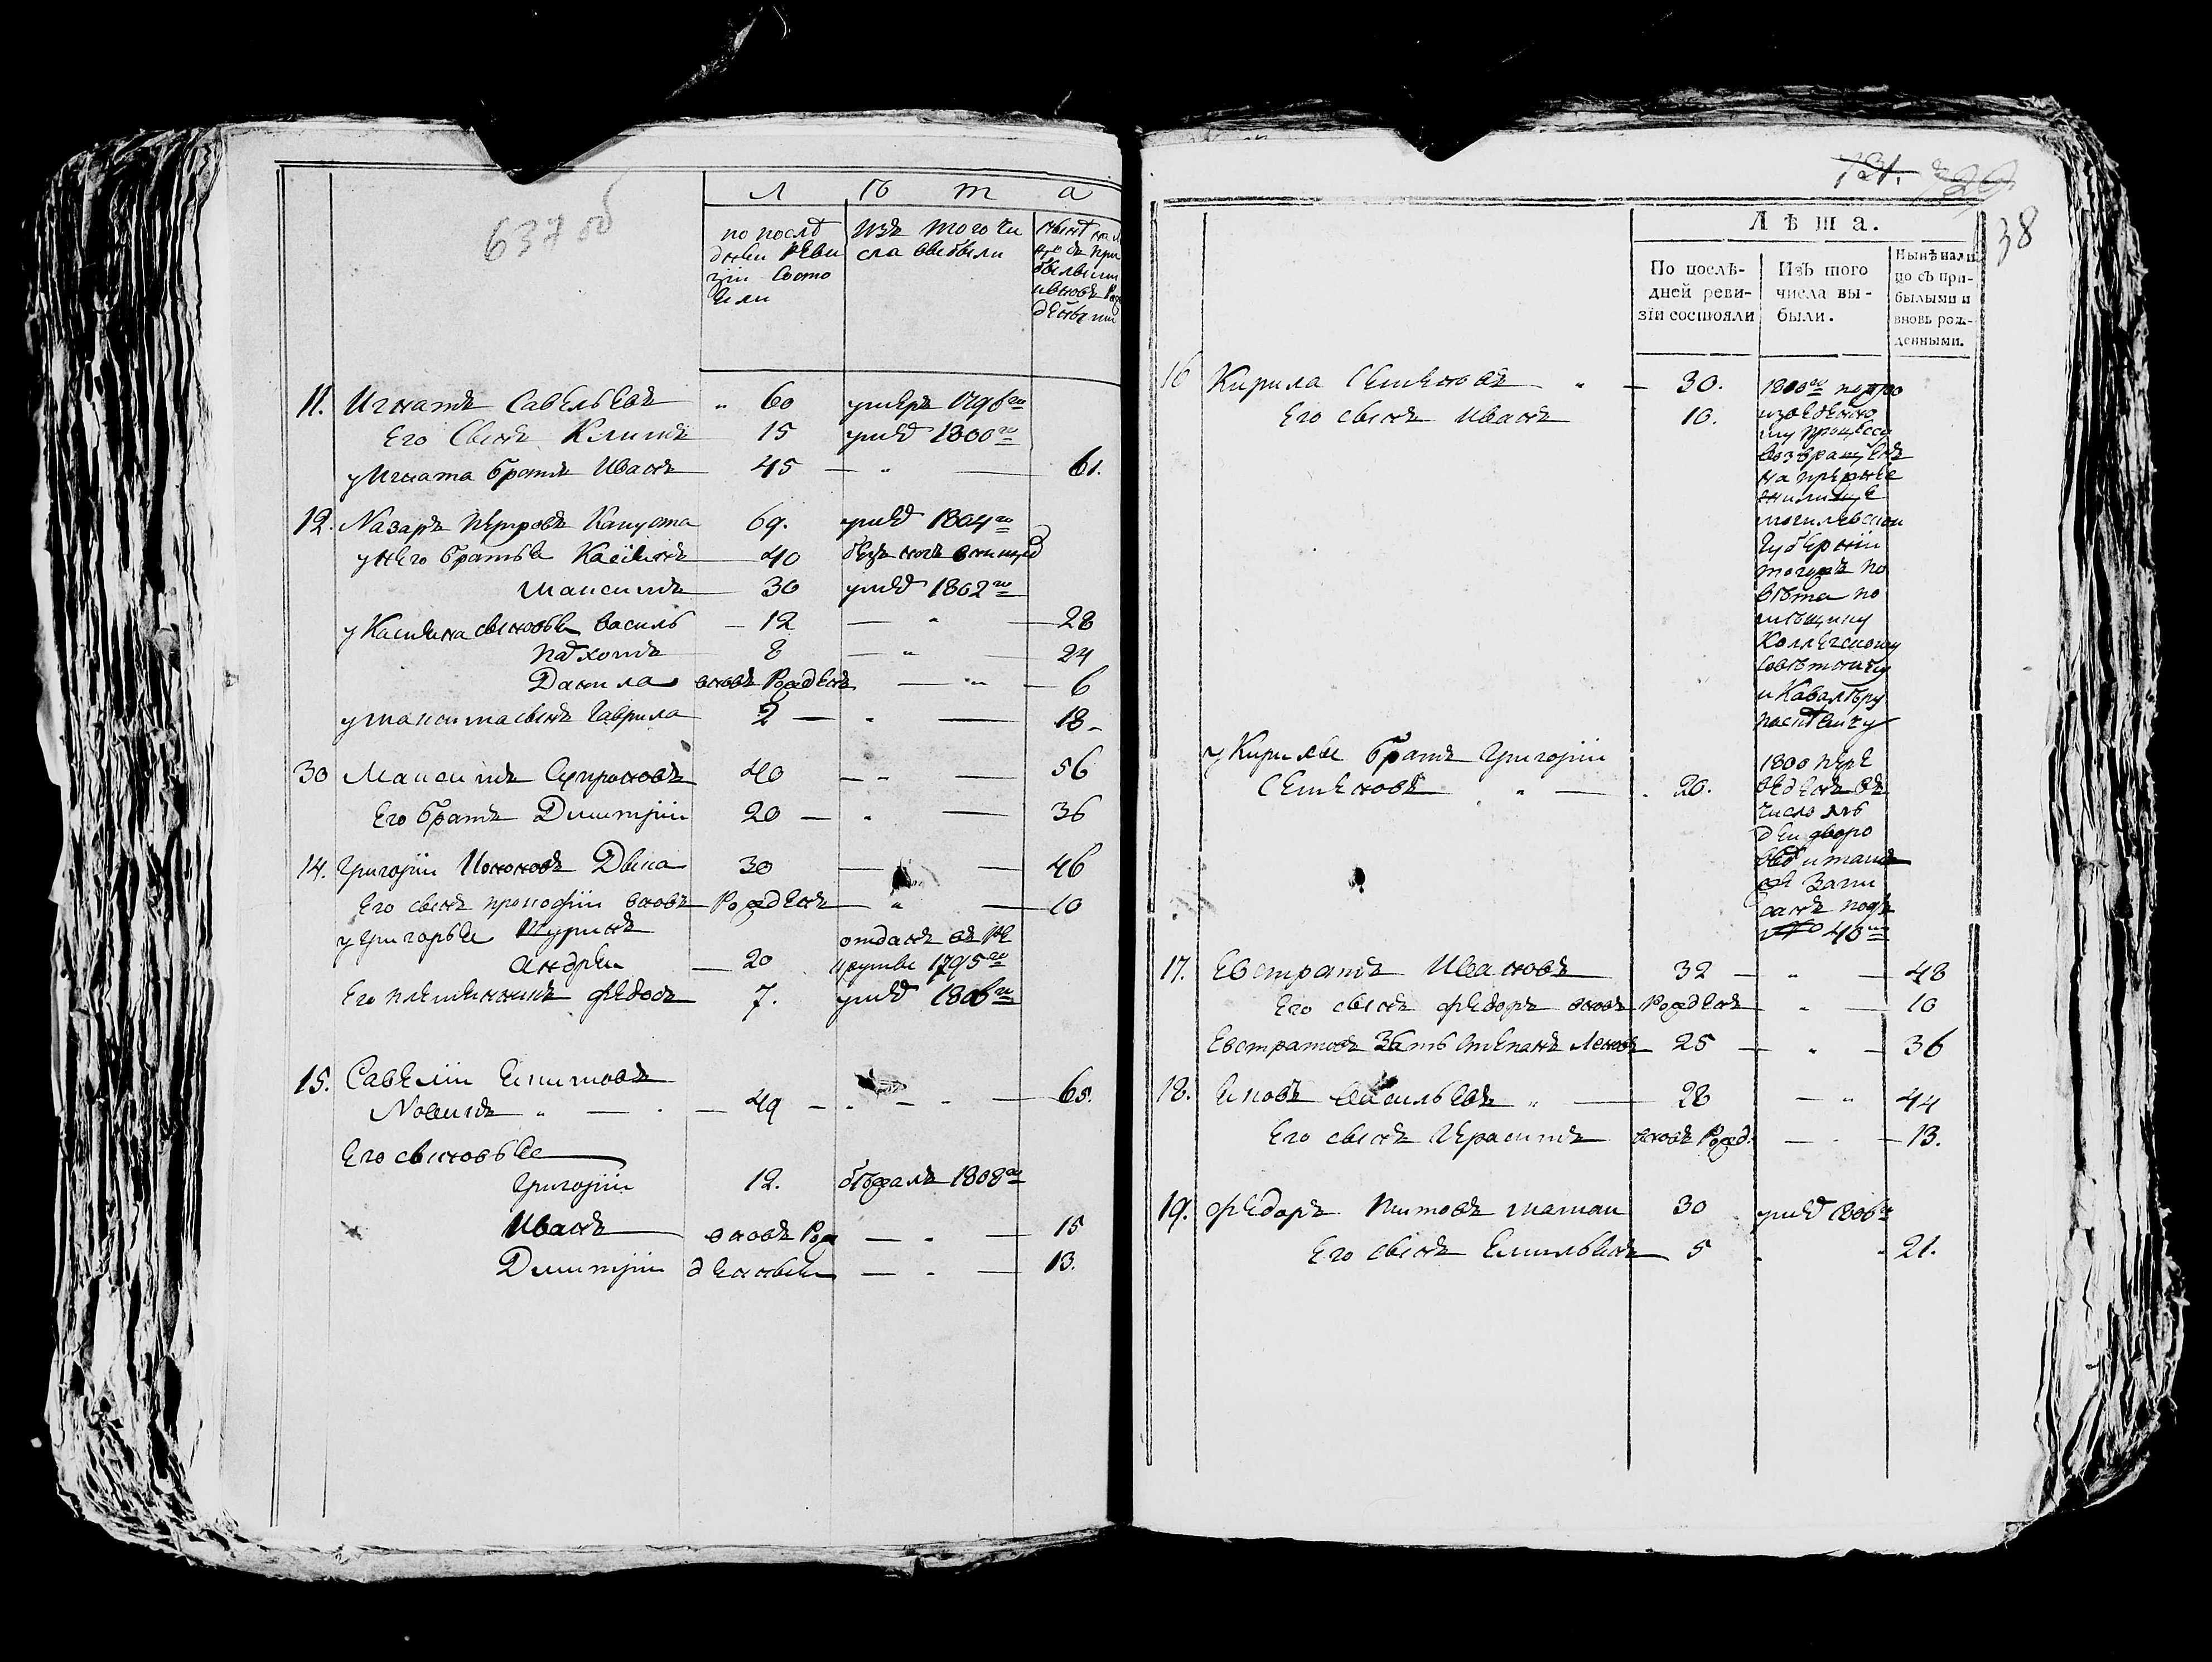 637 об
Л ѣ т а
по послѣ
дней реви
зіи состо
яли
изъ того чи
сла выбыли
нынѣ на л
цо съ при
былыми
и вновь рож
денными
11. Игнатъ Савельевъ " 60 умеръ 1796го
Его сынъ Климъ 15 умеръ 1800го
у Игната братъ Иванъ 45 — " — 61.
12. Назаръ Петровъ Капуста 69. умеръ 1804го
у него братья Касьянъ 40
Максимъ 30 умеръ 1802го
у Касьяна сыновья Василь — 12 — " — 28
Пахомъ 8 — " — 24
Данила вновь рожденъ — " — 6
у Максима сынъ Гаврила 2 — " — 18
30 Максимъ Супроновъ 40 — " — 56
Его братъ Дмитрій 20 — " — 36
14. Григорій Кононовъ 30 — — 46
Его сынъ Прокофій вновь рожденъ " — 10
у Григорья шуринъ
Андрей — 20 отданъ въ ре
круты 1795го
Его племянникъ Федосъ 7. умеръ 1806го
15. Савелій
" — 49 — " — — 65.
Его сыновья
Григорій 12. бѣжалъ 1808го
Иванъ вновь рож — " — 15
Дмитрій денныи — " — 13.
731. 729
38
Лѣта.
По послѣ-
дней реви-
зіи состояли
Изъ того
числа вы-
были.
Нынѣ нали
цо съ при-
былыми и
вновь рож-
денными.
16 Кирила Семеновъ " — 30. 1800го по про
Его сынъ Иванъ 10. изведенно
му процессу
возвращенъ
на прежнее
жилище
могилевской
губерніи
тогожъ по
вѣта по
мѣщику
Коллежскому
совѣтнику
и Кавалѣру
у Кирилы братъ Григорій
Семеновъ " — 20. 1800 пере
веденъ въ
число лю
дей дворо
выхъ и тамъ
же запи
санъ подъ
№ 40мъ
17. Евстратъ Ивановъ 32 — " — 48
Его сынъ Федоръ вновь рожденъ " — 10
Евстратовъ зять Степанъ Леновъ 25 — " — 36
18. Яковъ Васильевъ " — 28 — " 44
Его сынъ Герасимъ вновь рожд. — " — 13.
19. Федоръ Титовъ 30 умеръ 1806го
Его сынъ Емельянъ 5 " " 21.